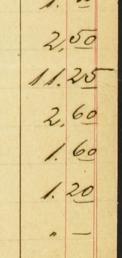 2.50
11.25
2.60
1.60
1.20
" —